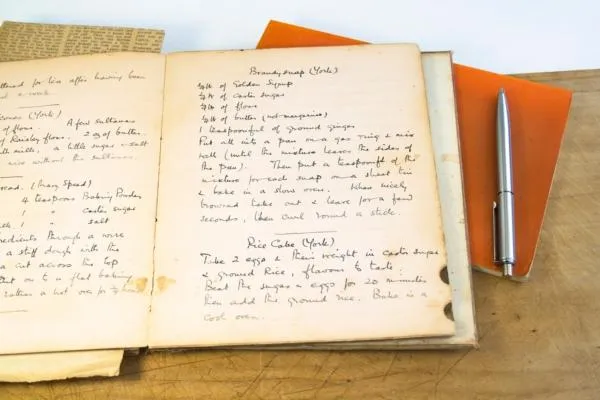 for tea after having been
a week.
(Yorks)
of flour. A few sultanas
of flour. 2 oz of butter.
milk, a little sugar & salt
nice without the sultanas.
(Mary Spead)
4 teaspoons Baking Powder
1 " Castor sugar
1 " salt
through a wire
a stiff dough with the
a cut across the top
on to a flat baking
rather a hot oven for ½ hour
Brandysnap (Yorks)
¼ lb of Golden Syrup
¼ lb of Castor sugar
¼ lb of flour
¼ lb of butter (not margarine)
1 teaspoonful of ground ginger
Put all into a pan on a gas ring & mix
well (until the mixture leaves the sides of
the pan). Then put a teaspoonful of the
mixture for each snap on a sheet tin
& bake in a slow oven. When nicely
browned take out & leave for a few
seconds, then curl round a stick.
Rice Cake (Yorks)
Take 2 eggs & their weight in castor sugar
& ground Rice, flavour to taste.
Beat the sugar & eggs for 20 minutes
then add the ground rice. Bake in a
cool oven.